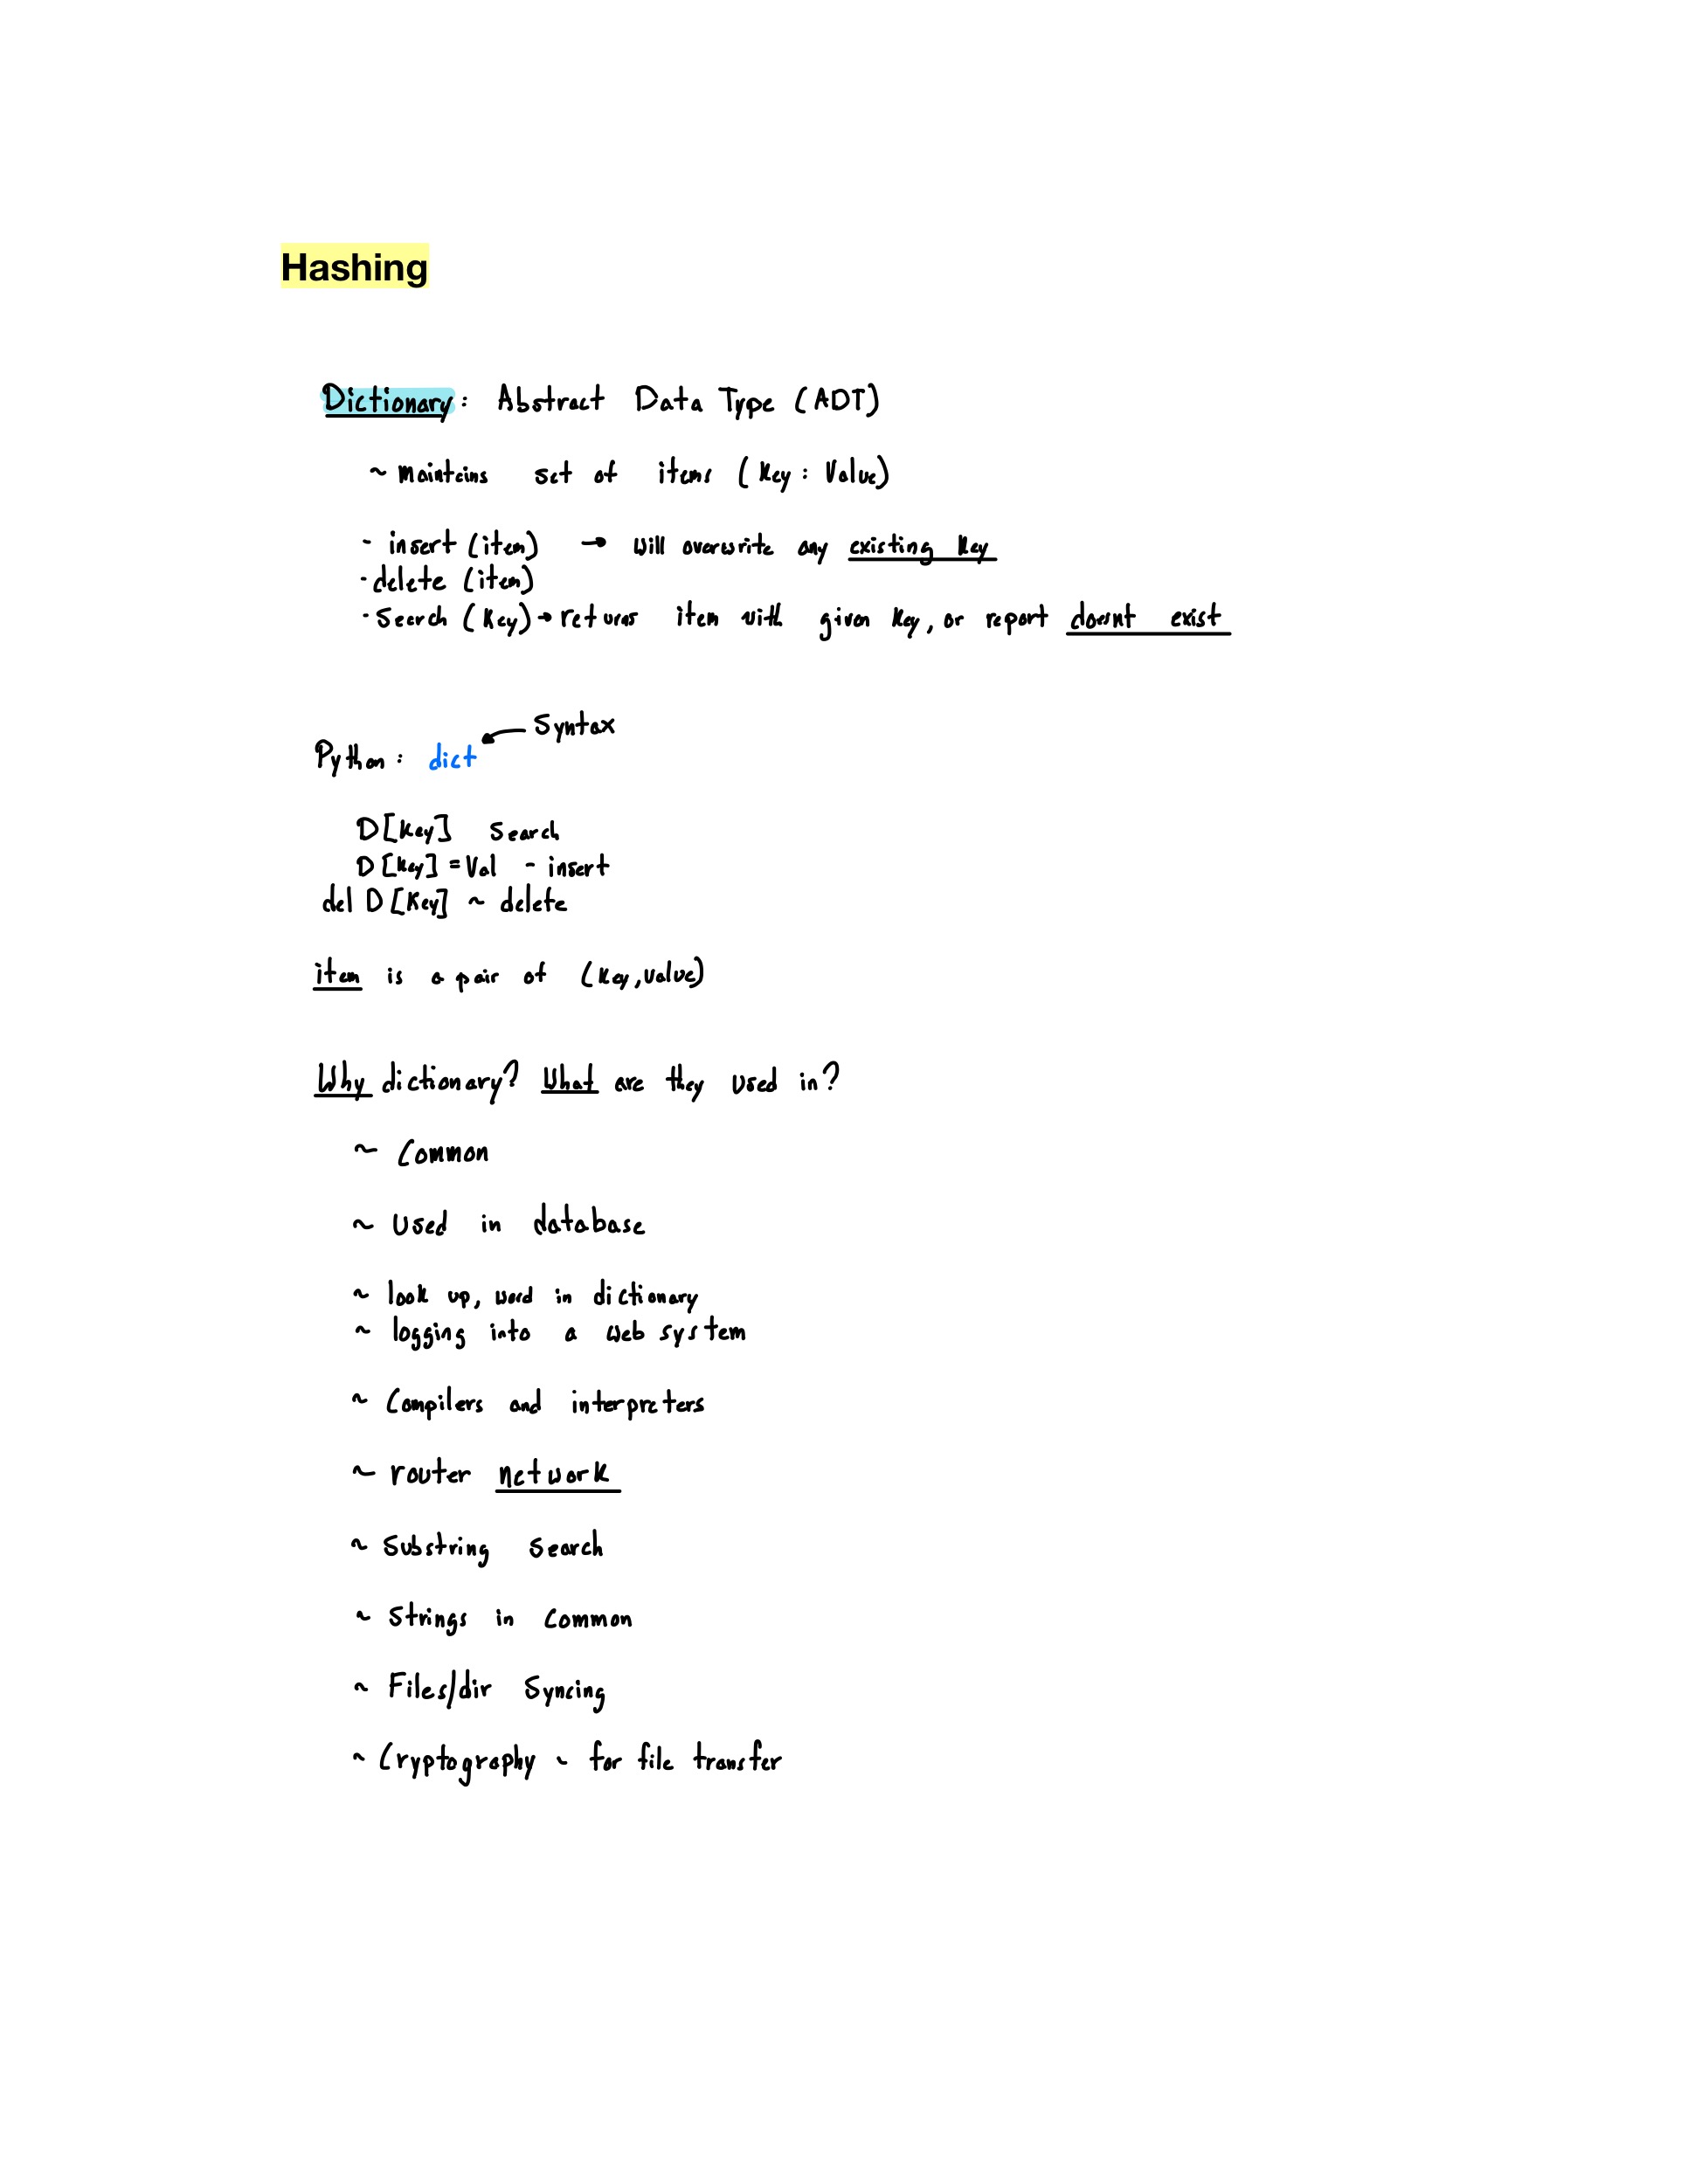 Hashing
Dictionary: Abstract Data Type (ADT)
~ maintains set of items (Key : Value)
- insert (item) → will overwrite any existing key
- delete (item)
- Search (Key) → returns item with given key, or report doesnt exist
Syntax
Python: dict
D[Key] Search
D[Key] = Val - insert
del D[Key] ~ delete
item is a pair of (Key, value)
Why dictionary? What are they used in?
~ Common
~ Used in database
~ look up, word in dictionary
~ logging into a web system
~ Compilers and interpreters
~ router network
~ Substring Search
~ Strings in common
~ Files/dir Syncing
~ Cryptography ~ for file transfer